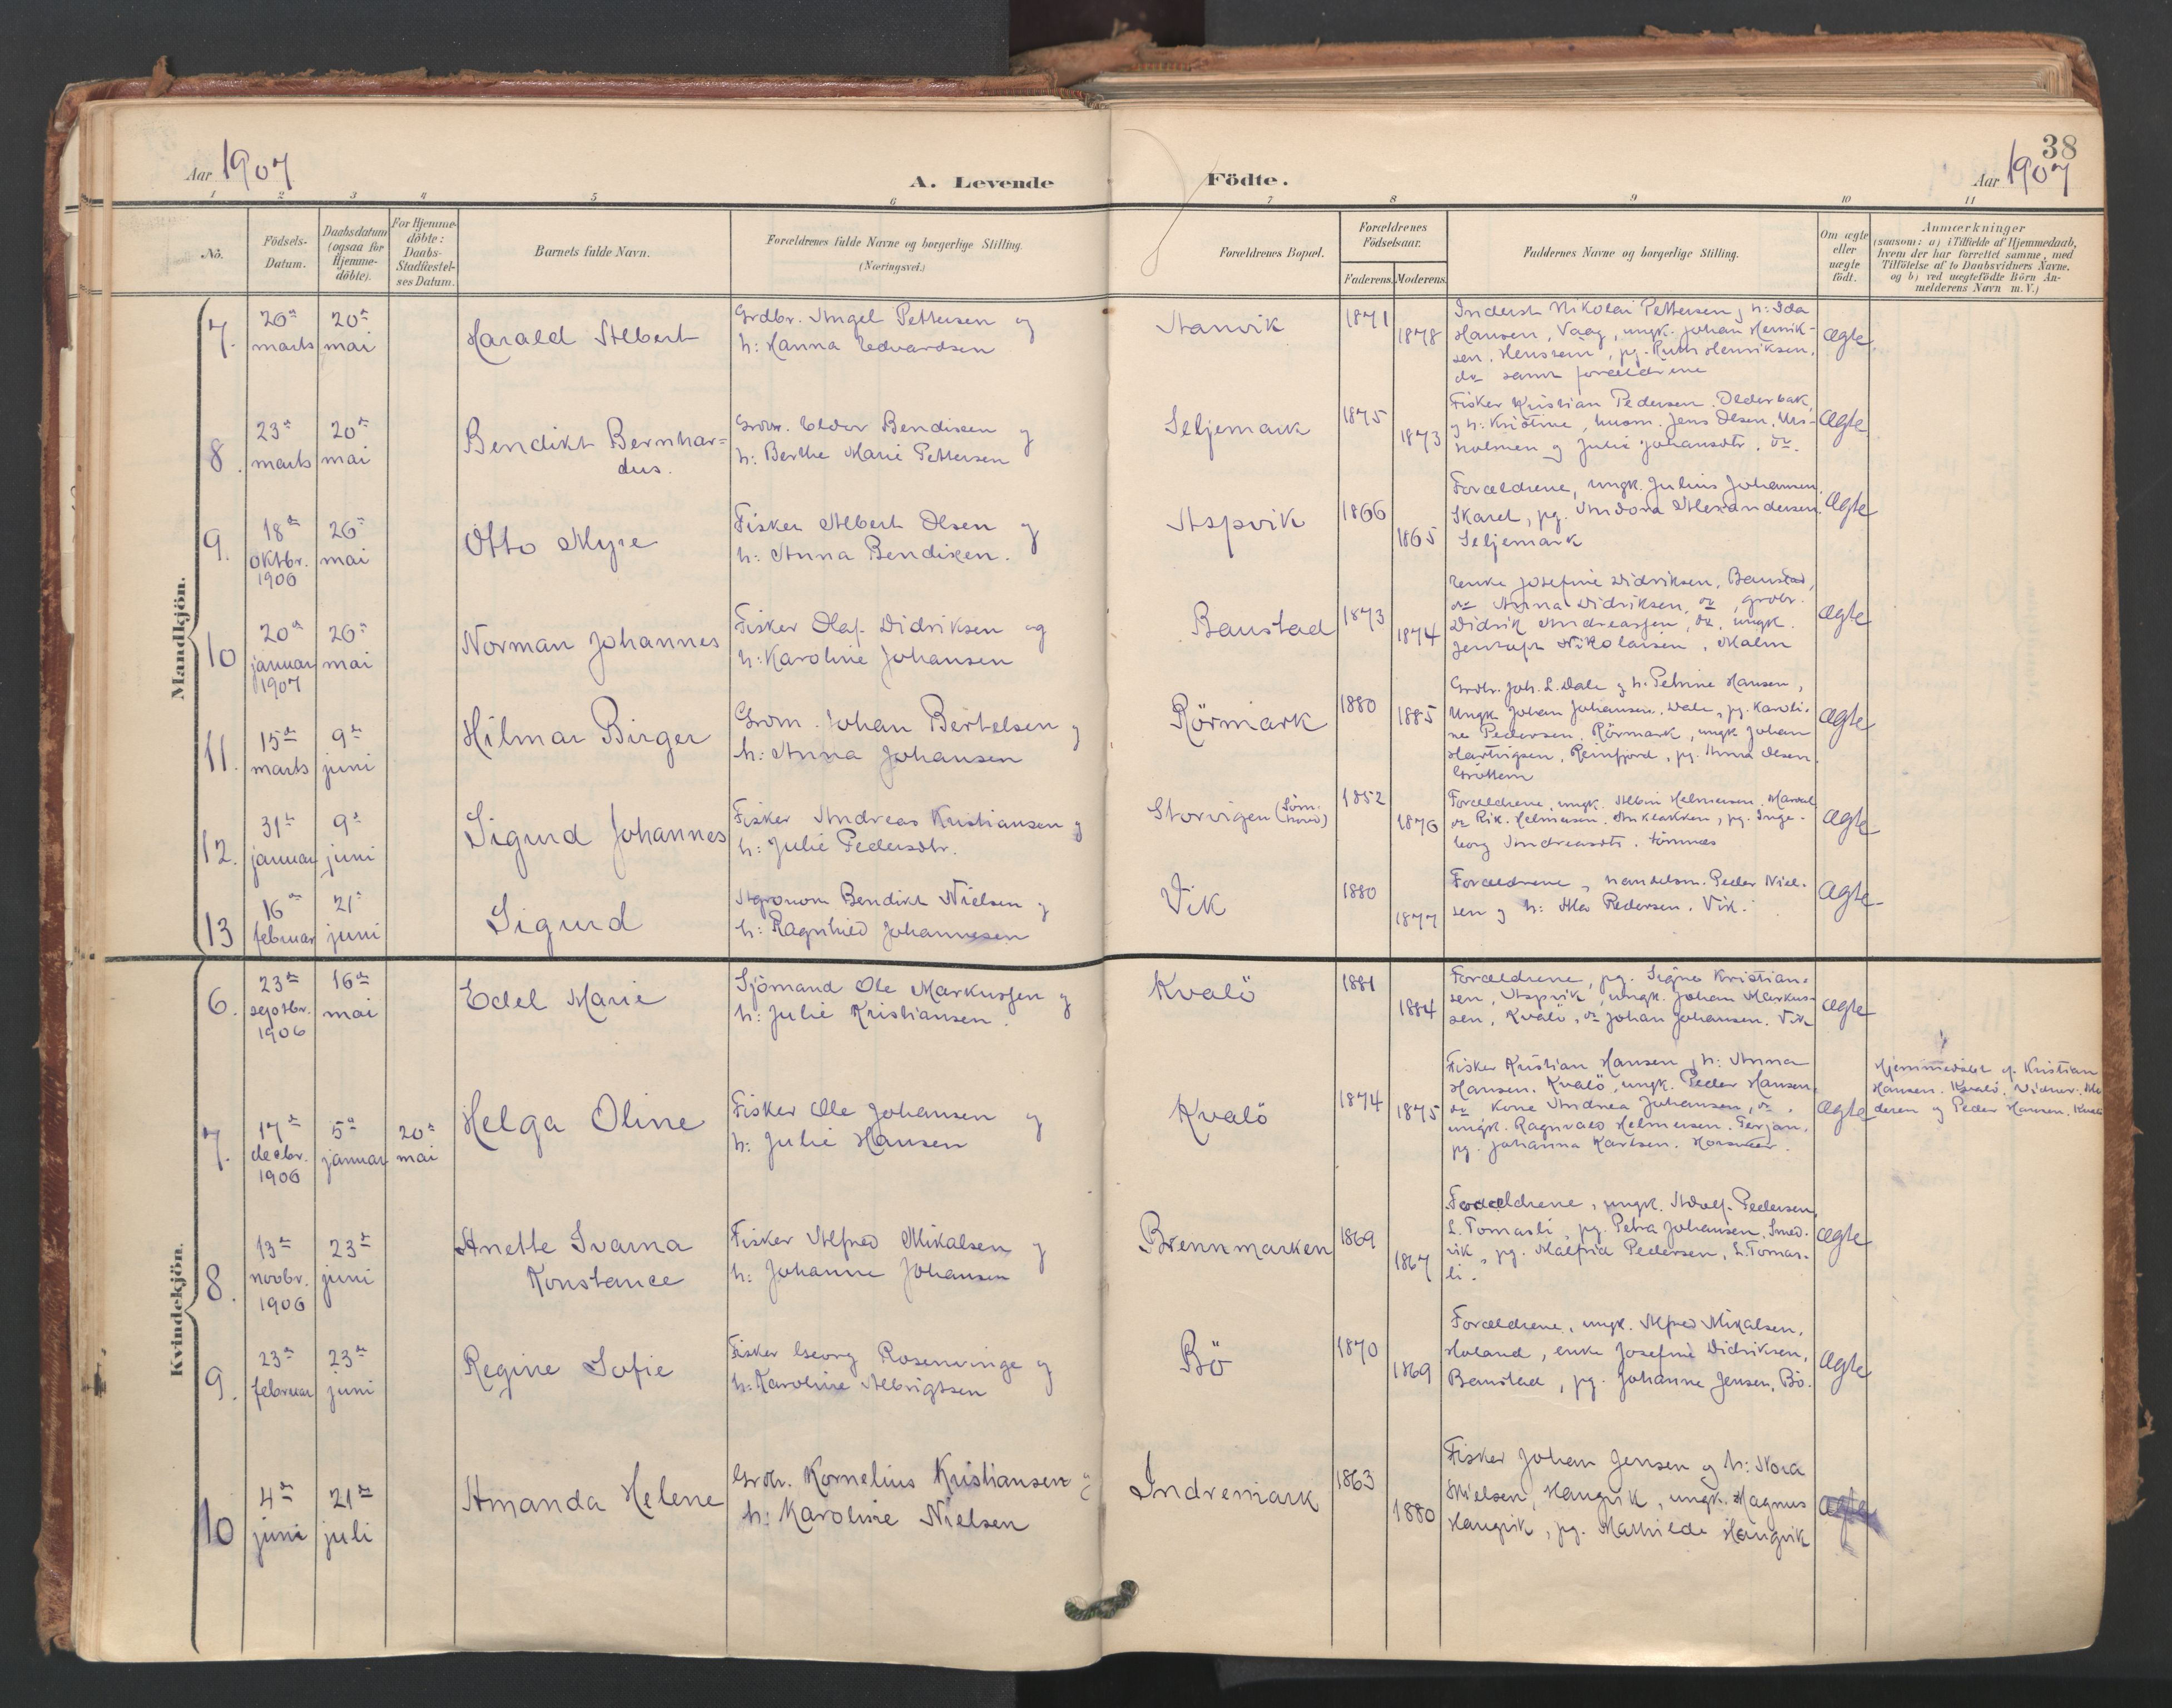 38
Aar 1907
A. Levende Födte.
Aar 1907
1 2 3 4 5 6 7 8 9 10 11
No.
Födsels-
Datum.
Daabsdatum
(ogsaa for
Hjemme-
döbte).
For Hjemme-
döbte:
Daabs-
Stadfæstel-
ses Datum.
Barnets fulde Navn.
Forældrenes fulde Navne og borgerlige Stilling.
(Næringsvei.)
Forældrenes Bopæl.
Forældrenes
Födselsaar.
Faderens. Moderens.
Faddernes Navne og borgerlige Stilling.
Om ægte
eller
uægte
födt.
Anmærkninger
(saasom: a) i Tilfælde af Hjemmedaab,
hvem der har forrettet samme, med
Tilföielse af to Daabsvidners Navne,
og b) ved uægtefödte Börn An-
melderens Navn m. V.)
Mandkjön.
7.
26de
marts
20de
mai
Harald Albert
Grdbr. Angel Pettersen og
h: Hanna Edvardsen
Aanvik
1871
1878
Inderst Nikolai Pettersen, h: Ida
Hansen, Vaag, ungk. Johan Henrik-
sen, pg. Ruth Henriksen,
do samt forældrene
ægte
8.
23de
marts
20de
mai
Bendikt Bernhar=
dus.
Bendixen og
h: Berthe Marie Pettersen
Seljemark
1875
1873
Fisker Kristian Pedersen Olderbak,
og h: Kristine, husm. Jens Olsen,
holmen og Julie Johansdtr. do.
ægte
9.
18de
oktbr.
1906
26de
mai
Otto Myre
Fisker Albert Olsen og
h: Anna Bendixen.
Aspvik
1866
1865
Forældrene, ungk. Julius Johansen,
Skaret, pg. Andora Alexandersen
Seljemark
ægte
10
20de
januar
1907
26de
mai
Norman Johannes
Fisker Olaf Didriksen og
h: Karoline Johansen
Baustad
1873
1874
Enke Josefine Didriksen, Baustad,
do Anna Didriksen, do, grdbr.
Didrik Andreassen, do, ungk.
Nikolaisen, Malm
ægte
11.
15de
marts
9de
juni
Hilmar Birger
Johan Bertelsen og
h: Anna Johansen
Rörmark
1880
1885
Grdbr. Joh. L. Dale og h. Petrine Hansen,
Ungk. Johan Johansen, Dale, pg. Karoli-
ne Pedersen, Rörmark, ungk Johan
Hartvigsen, Reinfjord, pg. Anna Olsen
Gröttem
ægte
12.
31te
januar
9de
juni
Sigurd Johannes
Fisker Andreas Kristiansen og
h: Julie Pedersdtr.
Storvigen
1852
1876
Forældrene, ungk. Albin Helmersen,
do Rik. Helmersen, pg. Inge-
borg Andreasdtr.
ægte
13
16de
februar
21de
juni
Sigurd
Agronom Bendikt Nielsen og
h: Ragnhild Johannesen
Vik
1880
1877
Forældrene, handelsm. Peder Niel-
sen og h: Pedersen. Vik.
ægte
Kvindekjön.
6.
23de
septbr.
1906
16de
mai
Edel Marie
Sjömand Ole Markussen og
h: Julie Kristiansen.
Kvalö
1881
1884
Forældrene, pg. Signe Kristian-
sen, Aspvik, ungk. Johan Markus-
sen, Kvalö, do Johan Johansen. Vik
ægte
7.
17de
decbr.
1906
5te
januar
20de
mai
Helga Oline
Fisker Ole Johansen og
h: Julie Hansen
Kvalö
1874
1875
Fisker Kristian Hansen, h: Anna
Hansen. Kvalö, ungk. Peder Hansen,
do Kone Andrea Johansen, do.
ungk. Ragnvald Helmersen. Terjan,
pg. Johanna Karlsen.
ægte
Hjemmedöbt af Kristian
Hansen. Kvalö. Vidner. Mo
deren og Peder Hansen. Kvalö
8.
13de
novbr.
1906
23de
juni
Anette Ivarna
Konstance
Fisker Alfred Mikalsen og
h: Johanne Johansen
Brennmarken
1869
1867
Forældrene, ungk. Adolf Pedersen,
L. Tomasli, pg. Petra Johansen, Smed-
vik, pg. Malfrid Pedersen, L. Tomas-
li.
ægte
9.
23de
februar
23de
juni
Regine Sofie
Fisker Georg Rosenvinge og
h: Karoline Albrigtsen
Bö
1870
1869
Forældrene, ungk. Alfred Mikalsen,
Holand, enke Josefine Didriksen,
Baustad, pg. Johanne Jensen, Bö.
ægte
10
4de
juni
21de
juli
Amanda Helene
Grdbr. Kornelius Kristiansen og
h: Karoline Nielsen
Indremark
1863
1880
Fisker Johan Jensen og h: Nora
Nielsen, Haugvik, ungk. Magnus
Haugvik, pg. Mathilde Haugvik
ægte